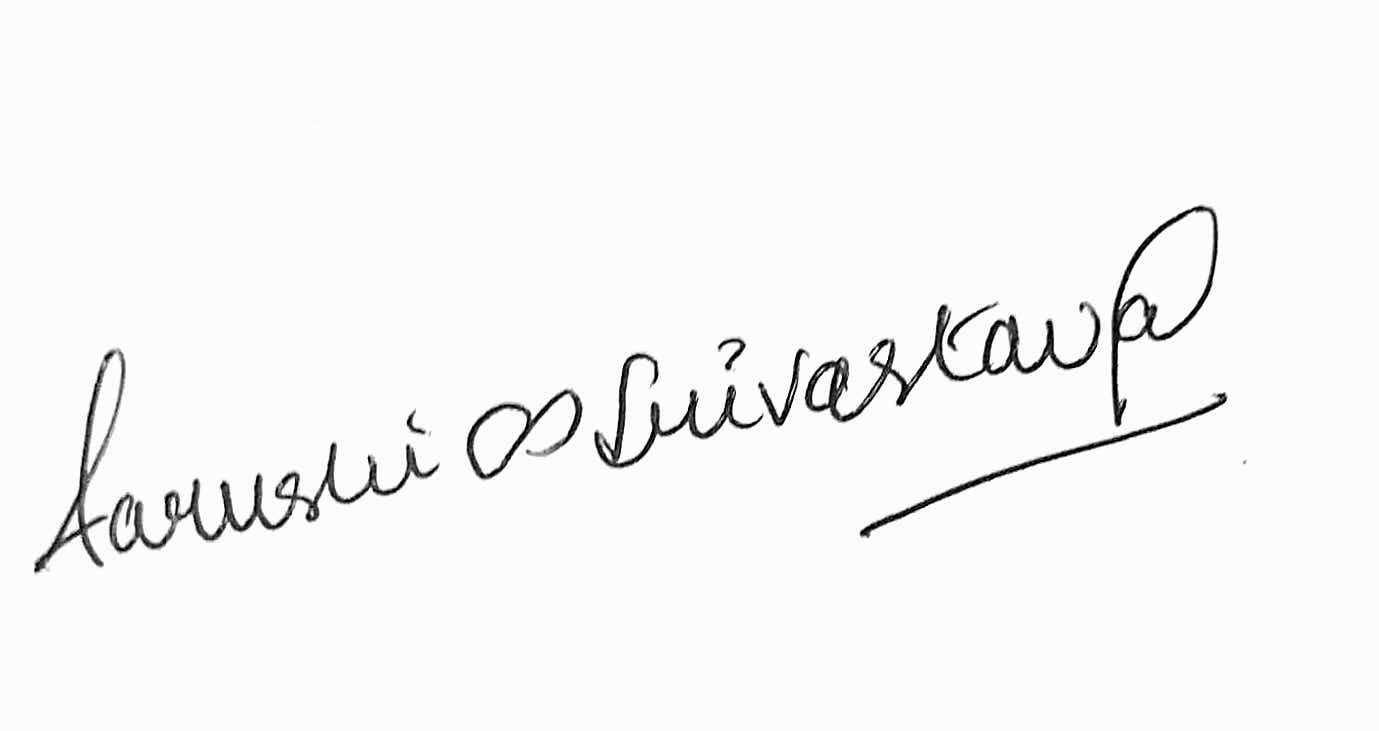 Aarushi Srivastava